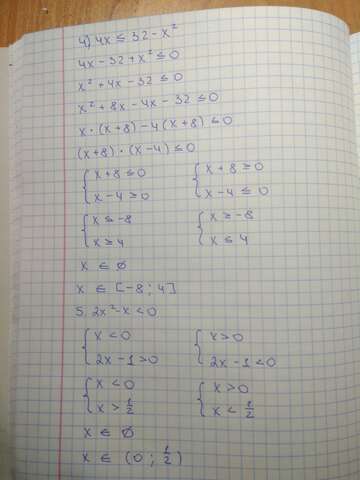 4) 4x ≤ 32 - x²
4x - 32 + x² ≤ 0
x² + 4x - 32 ≤ 0
x² + 8x - 4x - 32 ≤ 0
x · (x+8) - 4(x+8) ≤ 0
(x+8) · (x-4) ≤ 0
{ x+8 ≤ 0 { x+8 ≥ 0
x-4 ≥ 0 x-4 ≤ 0
{ x ≤ -8 { x ≥ -8
x ≥ 4 x ≤ 4
x ∈ ∅
x ∈ [-8; 4]
5. 2x² - x < 0
{ x < 0 { x > 0
2x - 1 > 0 2x - 1 < 0
{ x < 0 { x > 0
x > 1/2 x < 1/2
x ∈ ∅
x ∈ (0; 1/2)